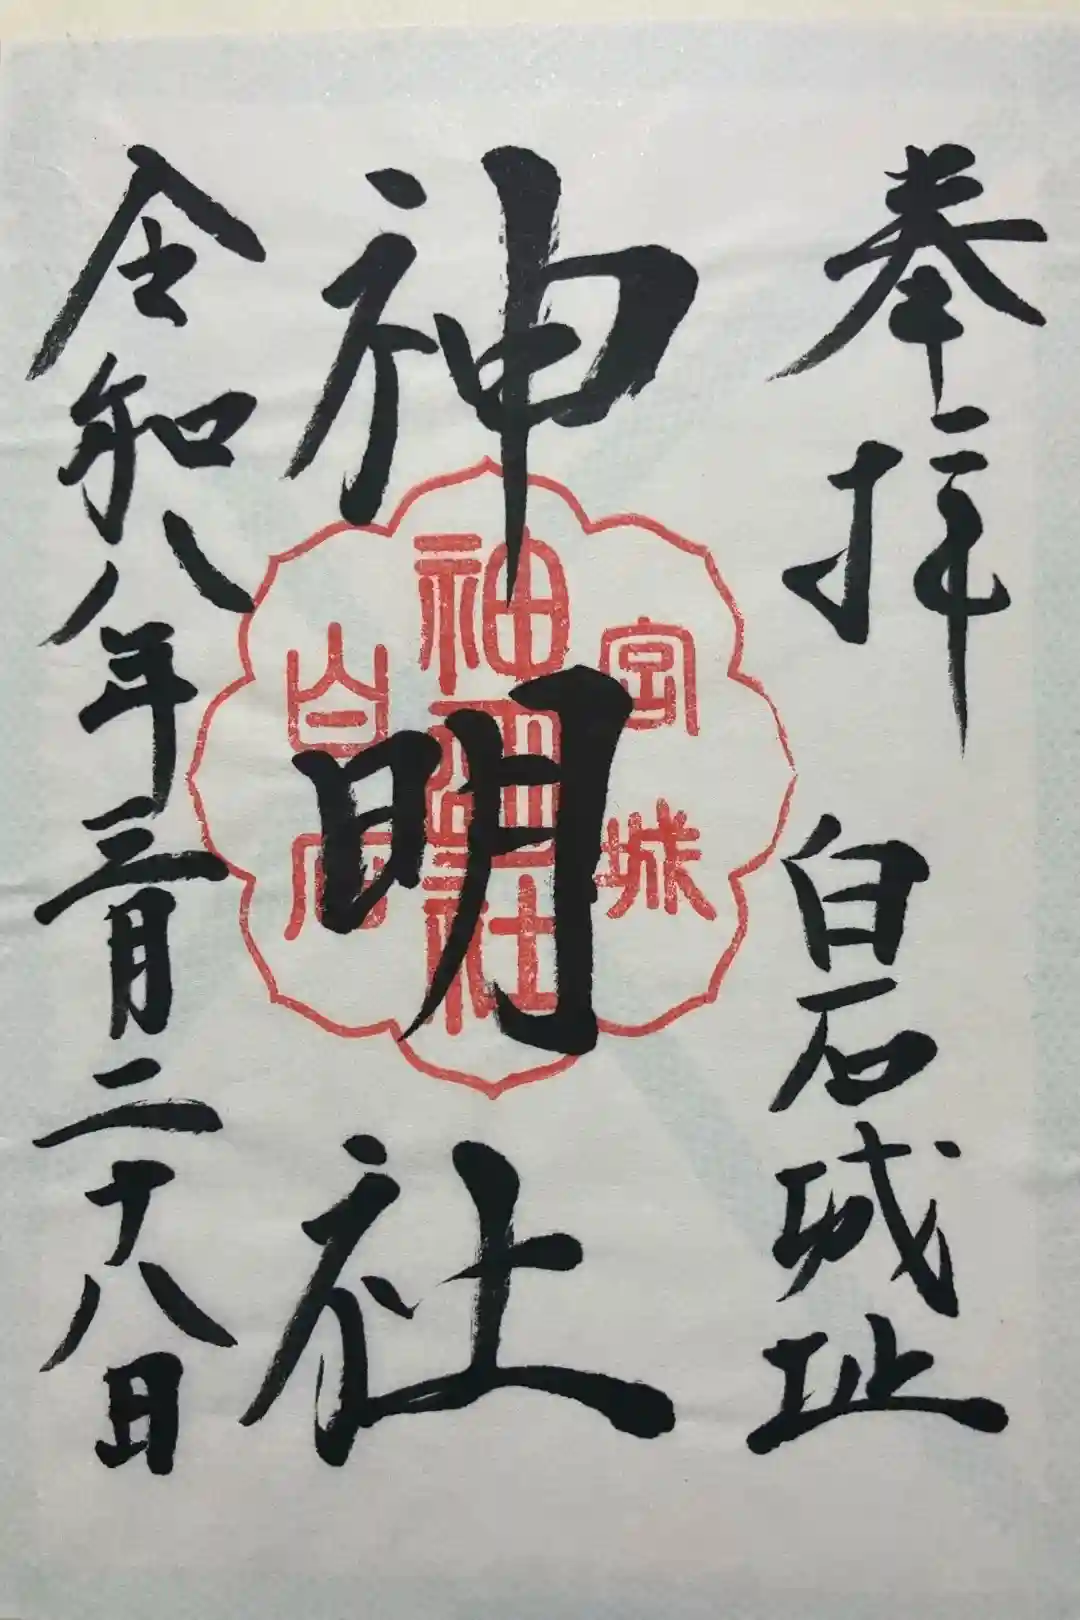 奉拝 白石城址
神明社
令和八年三月二十八日
宮城
神明社
白石